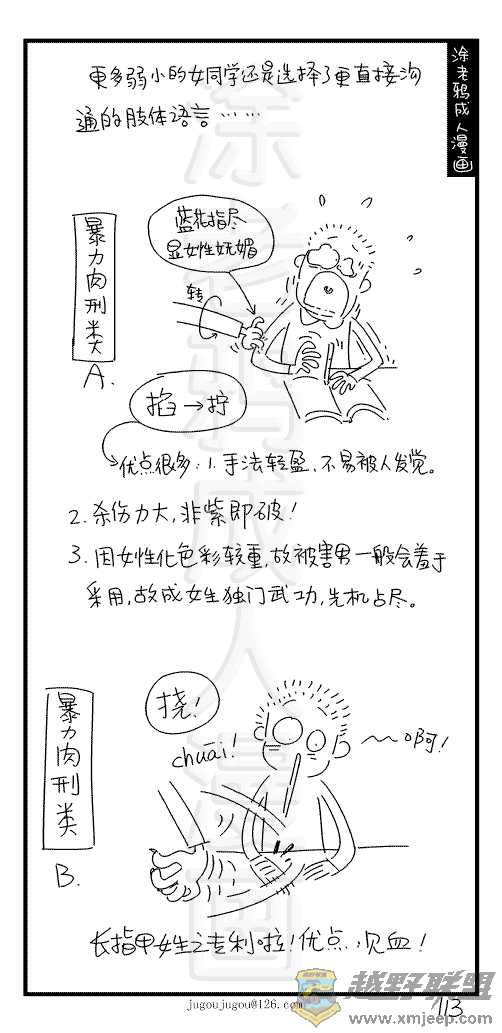 涂老鸦成人漫画
更多弱小的女同学还是选择了更直接沟
通的肢体语言……
暴力肉刑类
A.
兰花指尽
显女性妩媚
转
掐→拧
优点很多:1.手法轻盈、不易被人发觉。
2.杀伤力大,非紫即破!
3.因女性化色彩较重,故被害男一般会羞于
采用,故成女生独门武功,先机占尽。
暴力肉刑类
B.
挠!
chuāi!
~~啊!
长指甲女生之专利啦!优点:见血!
jugoujugou@126.com
113
越野联盟
www.xmjeep.com
涂老鸦成人漫画